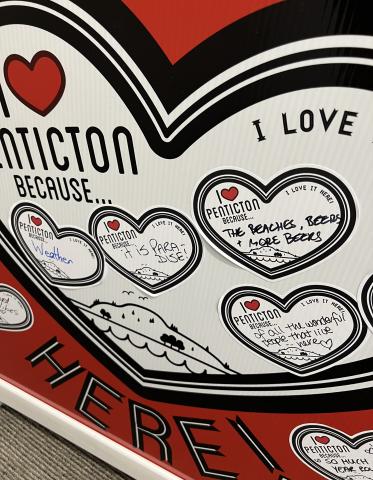 I ❤
PENTICTON
BECAUSE...
I LOVE
I ❤
PENTICTON
BECAUSE...
I LOVE IT HERE!
Weather
I ❤
PENTICTON
BECAUSE...
I LOVE IT HERE!
it IS PARA-
DISE!
I ❤
PENTICTON
BECAUSE...
I LOVE IT HERE!
THE BEACHES, BEERS
+ MORE BEERS
I ❤
PENTICTON
BECAUSE...
I LOVE IT HERE!
of all the wonderful
people that live
here ♡
HERE!
I ❤
PENTICTON
BECAUSE...
SO MUCH
YEAR